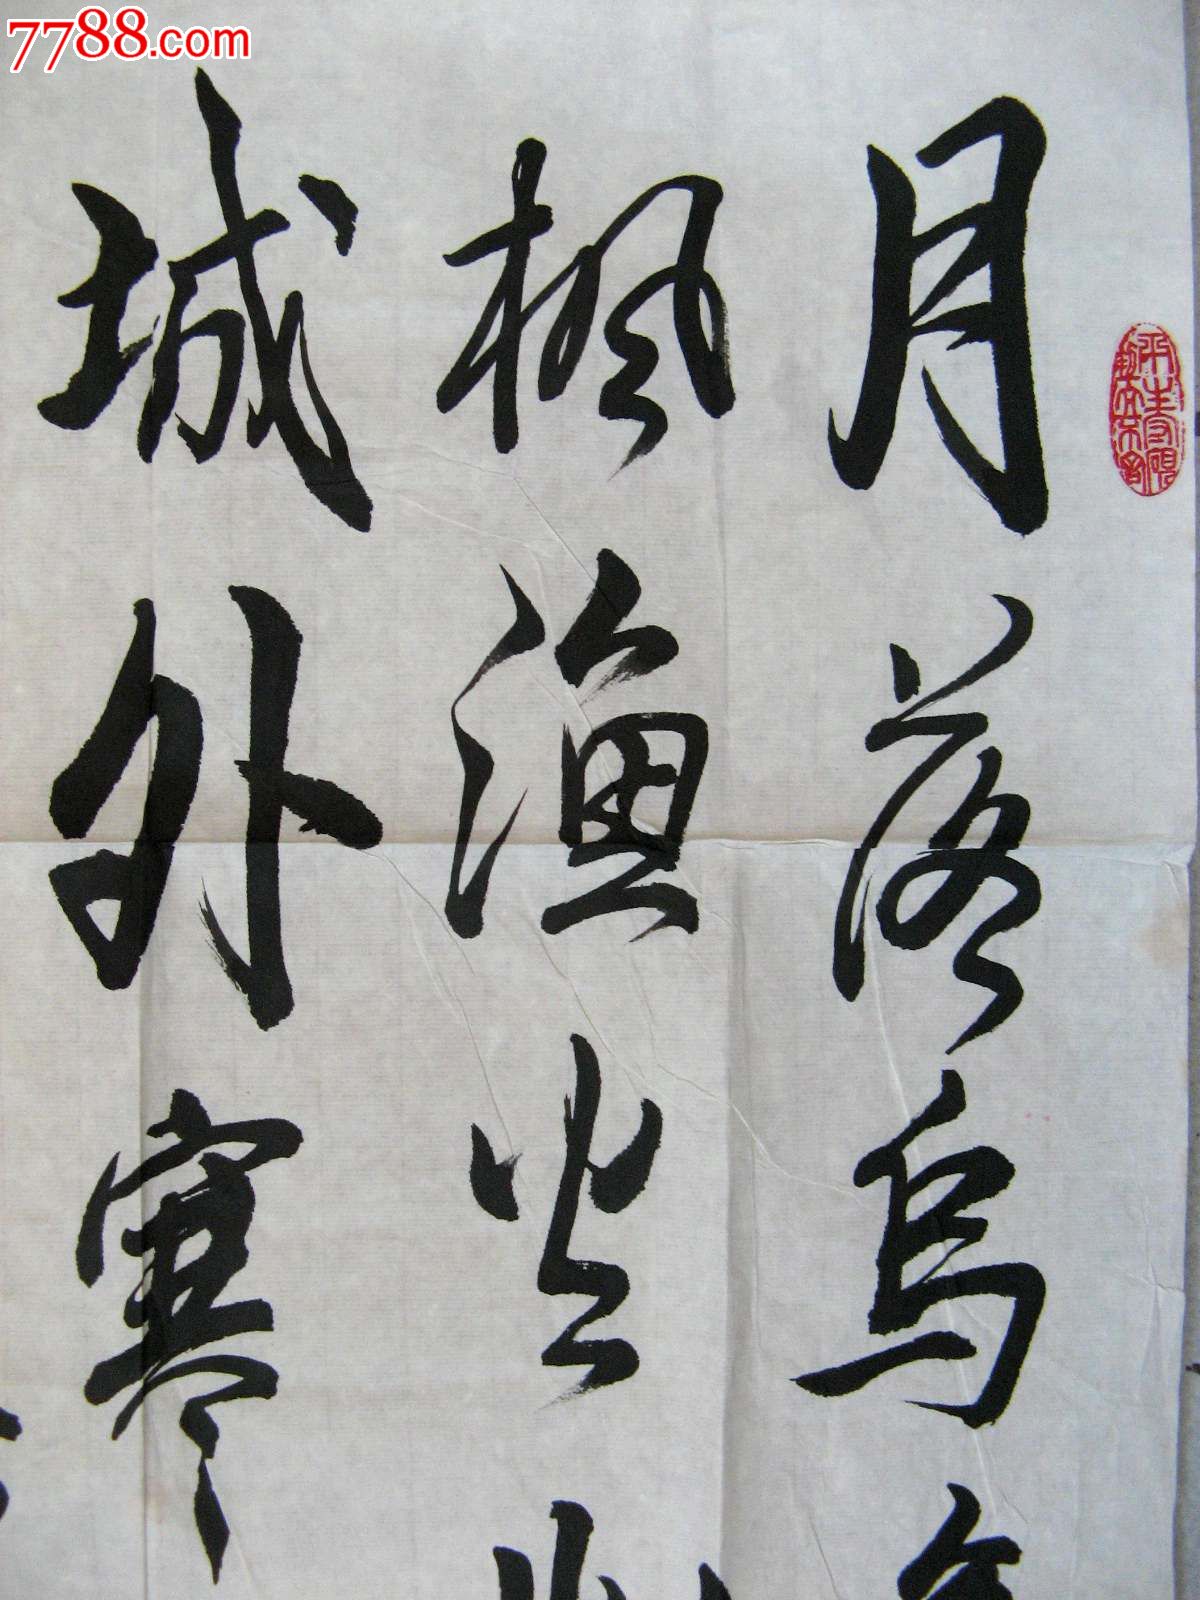 7788.com
月落烏
楓漁火
城外寒